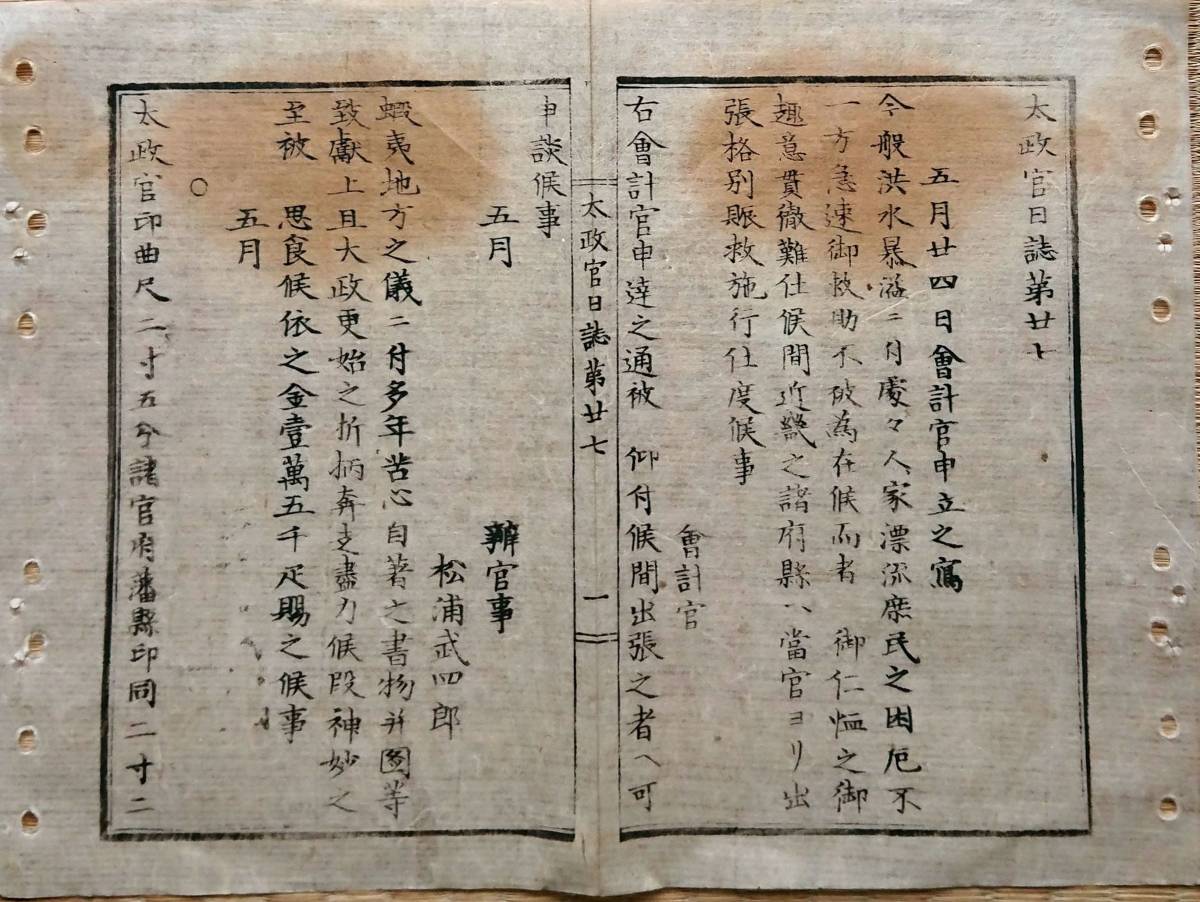 太政官日誌第廿七
五月廿四日會計官申立之寫
今般洪水暴溢ニ付處々人家漂流庶民之困厄不
一方急速御救助不被為在候而者　御仁恤之御
趣意貫徹難仕候間近畿之諸府縣ハ當官ヨリ出
張格別賑救施行仕度候事
會計官
右會計官申達之通被　仰付候間出張之者ヘ可
太政官日誌第廿七　一
申談候事
五月
辦官事
松浦武四郎
蝦夷地方之儀ニ付多年苦心自著之書物并圖等
致獻上且大政更始之折柄奔走盡力候段神妙之
至被　思食候依之金壹萬五千疋賜之候事
五月
○
太政官印曲尺二寸五分諸官府藩縣印同二寸二